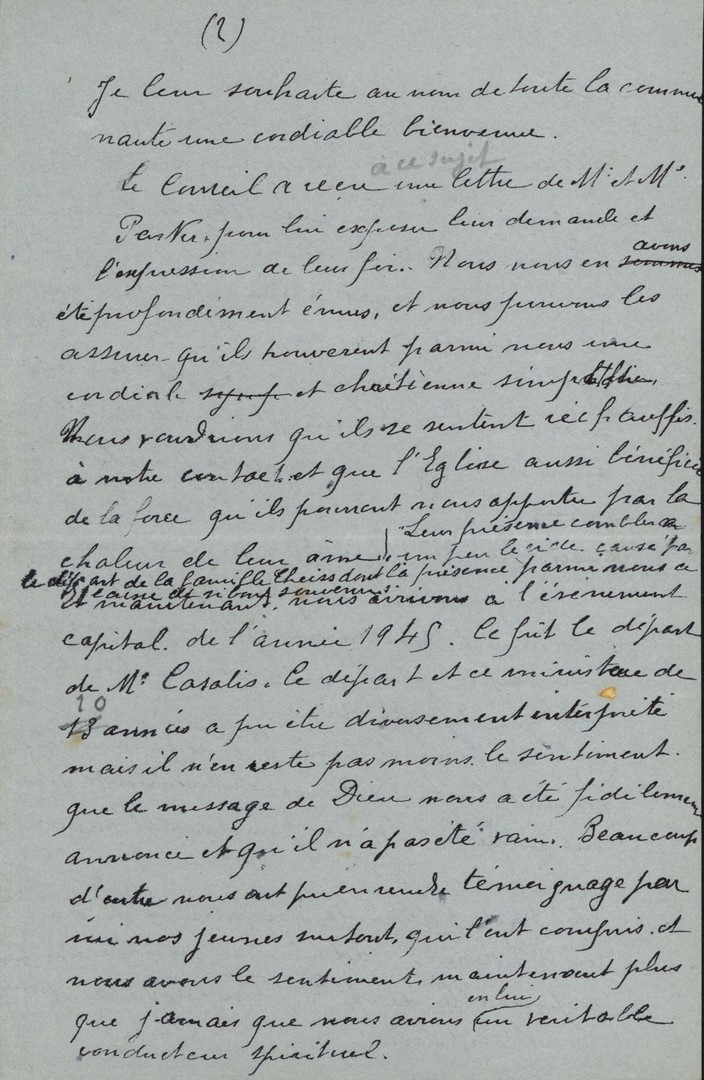 (2)
Je leur souhaite au nom de toute la commu
nauté une cordiable bienvenue.
à ce sujet
Le Conseil a reçu une lettre de Mr et Me
pour lui exposer leur demande et
l'expression de leur foi. Nous nous en sommes avons
été profondément émus, et nous pouvons les
assurer qu'ils trouveront parmi nous une
cordiale symp et chrétienne sympathie.
Nous voudrions qu'ils se sentent réchauffés
à notre contact et que l'Eglise aussi bénéficie
de la force qu'ils pourront nous apporter par la
chaleur de leur âme. Leur présence comblera
un peu le vide causé par
le départ de la famille Theiss dont la présence parmi nous a
laissé de si bons souvenirs.
Et maintenant, nous arrivons à l'événement
capital de l'année 1945. Ce fût le départ
de Mr Casalis. Ce départ et ce ministère de
10
13 années a pu être diversement interprété
mais il n'en reste pas moins le sentiment
que le message de Dieu nous a été fidèlement
annoncé et qu'il n'a pas été vain. Beaucoup
d'entre nous ont pu en rendre témoignage par
mi nos jeunes surtout, qui l'ont compris et
nous avons le sentiment maintenant plus
que jamais que nous avions en lui un véritable
conducteur spirituel.